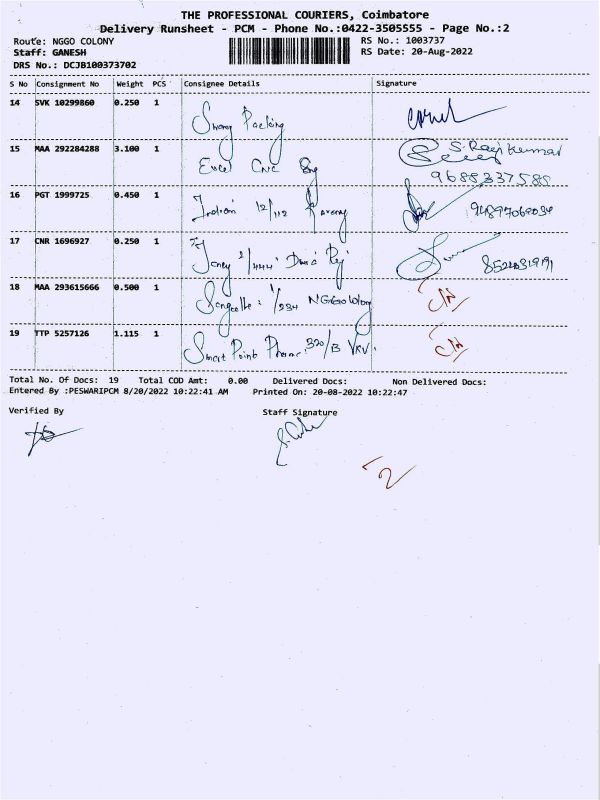 THE PROFESSIONAL COURIERS, Coimbatore
Delivery Runsheet - PCM - Phone No.:0422-3505555 - Page No.:2
Route: NGGO COLONY
RS No.: 1003737
Staff: GANESH
RS Date: 20-Aug-2022
DRS No.: DCJB100373702
S No Consignment No Weight PCS Consignee Details Signature
14 SVK 10299860 0.250 1 Packing
15 MAA 292284288 3.100 1 Excel CNC Eng S. Rajkumar
9688337588
16 PGT 1999725 0.450 1 Indian 12/112
17 CNR 1696927 0.250 1
18 MAA 293615666 0.500 1 Sangeetha : 1/234 NGGO Colony
19 TTP 5257126 1.115 1 Smart Point 320/B VKV.
Total No. Of Docs: 19 Total COD Amt: 0.00 Delivered Docs: Non Delivered Docs:
Entered By :PESWARIPCM 8/20/2022 10:22:41 AM Printed On: 20-08-2022 10:22:47
Verified By Staff Signature
2